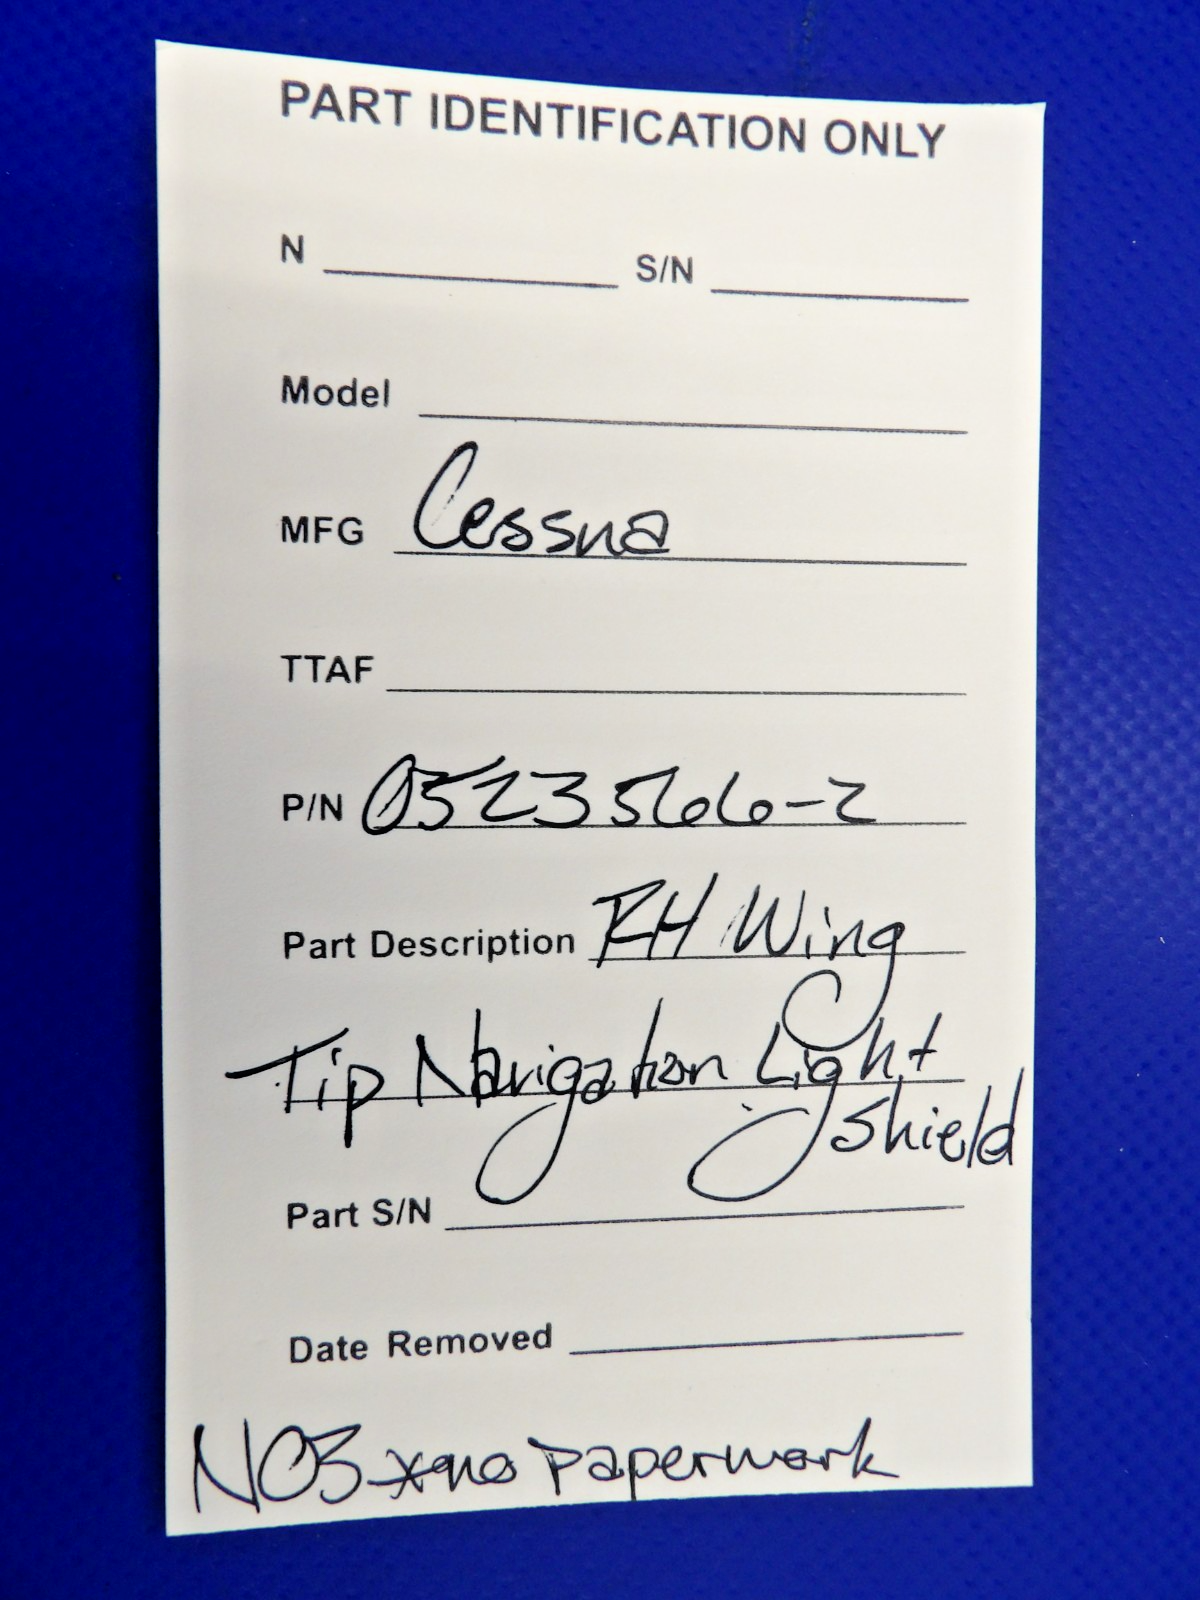 PART IDENTIFICATION ONLY
N S/N
Model
MFG Cessna
TTAF
P/N 0523566-2
Part Description RH Wing
Tip Navigation Light
Shield
Part S/N
Date Removed
NOS *no paperwork